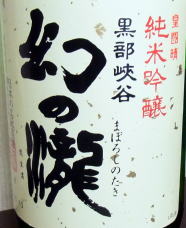 皇国晴
純米吟醸
黒部峡谷
幻の瀧
まぼろしのたき